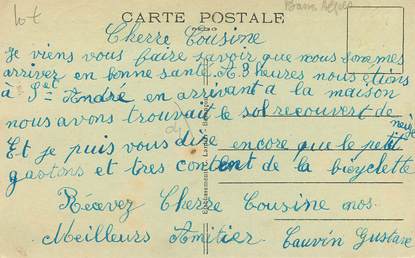 lot
CARTE POSTALE
Basses Alpes
Cherre Cousine
Je viens vous faire savoir que nous sommes
arrivez en bonne santé. A 3 heures nous étions
à St André en arrivant à la maison
nous avons trouvait le sol recouvert de
neige
Et je puis vous dire encore que le petit
gastons et tres content de la bicyclette
Recevez Cherre Cousine nos
Meilleurs Amitier. Cauvin Gustave